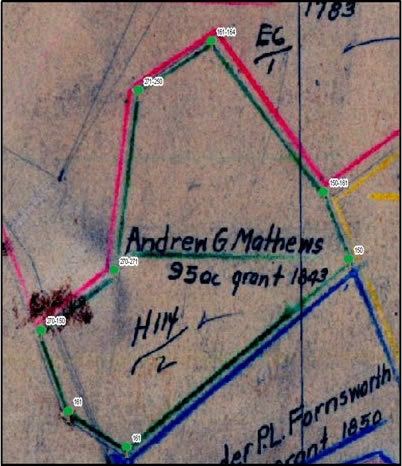 1783
161-164
EC
1
271-250
150-161
Andrew G. Mathews
95ac grant 1843
150
270-271
H114
2
270-150
161
161
der P.L. Fornsworth
grant 1850